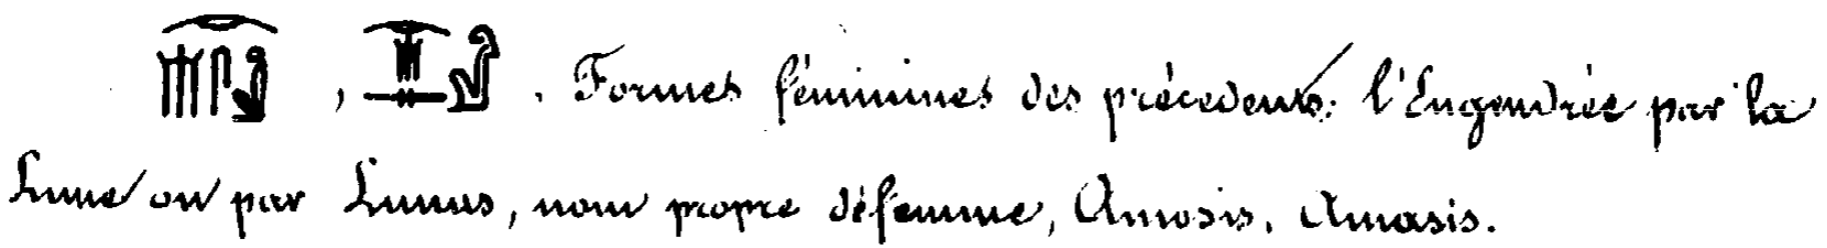 , . Formes féminines des précédents: l'Engendrée par la
Lune ou par Lunus, nom propre de femme, Amosis, Amasis.